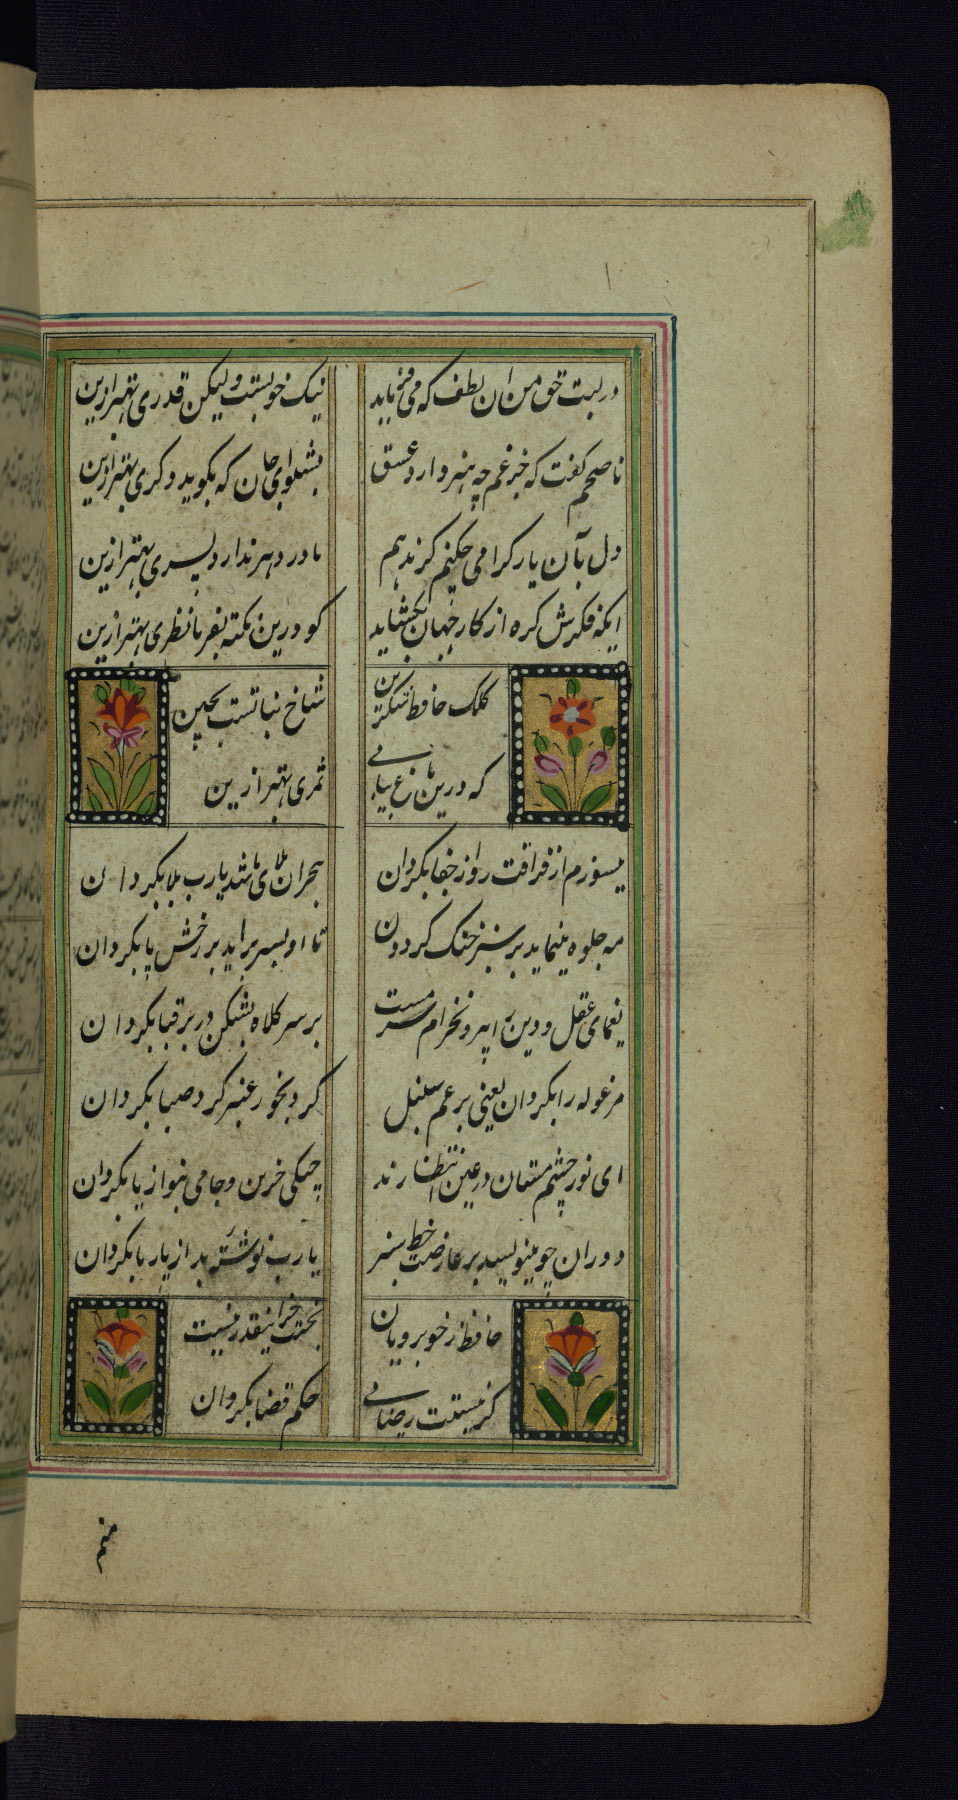 در لبت حق من ان لطف که می فرماید
نیک خوبست ولیکن قدری بهتر ازین
ناصحم کفت که جز غم چه هنر دارد عشق
بشنو ای جان که بکوید دکری بهتر ازین
دل بآن یار کرامی چکنم کر ندهم
مادر دهر ندارد پسری بهتر ازین
ایکه فکرش کره از کار جهان بکشاید
کو درین نکته بفرما نظری بهتر ازین
کلک حافظ شکرین
شاخ نباتست بچین
که درین باغ نیابی
ثمری بهتر ازین
میسوزم از فراقت رو از جفا بکردان
هجران بلای ما شد یارب بلا بکردان
مه جلوه مینماید بر سبز خنک کردون
تا او بسر براید بر رخش پا بکردان
یغمای عقل و دین را بیرون خرام سرمست
بر سر کلاه بشکن در بر قبا بکردان
مرغوله را بکردان یعنی برغم سنبل
کرد بخور عنبر کرد صبا بکردان
ای نور چشم مستان در عین انتظارند
چنکی حزین و جامی بنواز یا بکردان
دوران چو مینویسد بر عارضت خط سبز
یارب نوشته بد از یار ما بکردان
حافظ ز خوبرویان
بختت جز اینقدر نیست
کر نیستت رضایی
حکم قضا بکردان
منم